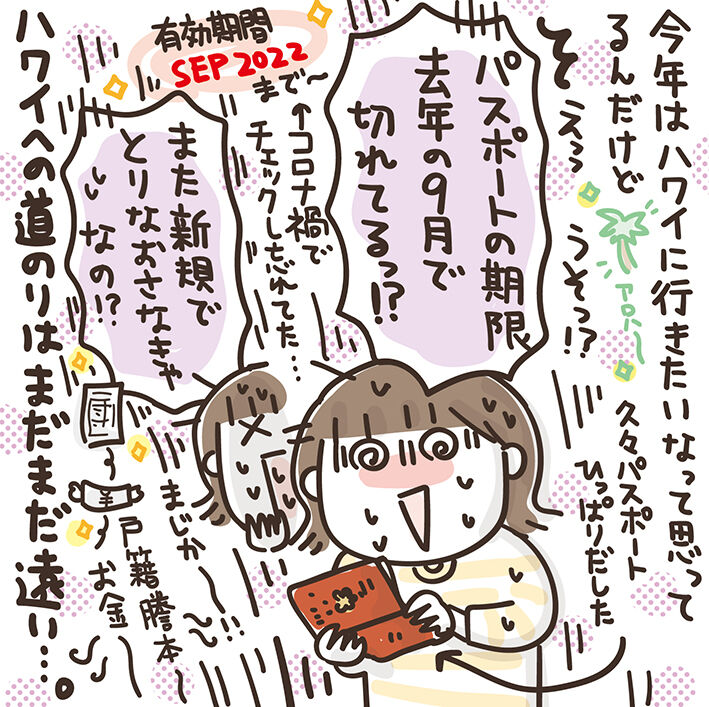 今年はハワイに行きたいなって思って
るんだけど
アロハ〜
えっっ
うそっ!?
久々パスポート
ひっぱりだした
パスポートの期限
去年の9月で
切れてるっ!?
有効期間
SEP 2022
まで〜
↑コロナ禍で
チェックし忘れてた…
また新規で
とりなおさなきゃ
いいなの!?
まじか〜〜!!
戸籍謄本
お金〜
ハワイへの道のりはまだまだ遠い…。